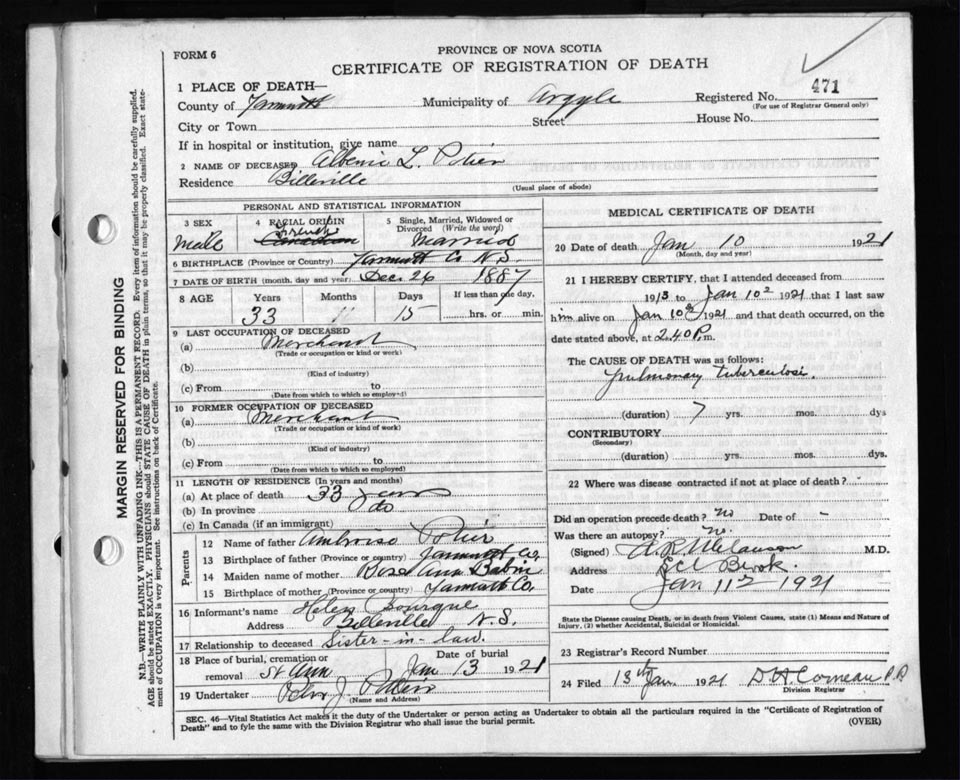 PROVINCE OF NOVA SCOTIA
FORM 6
CERTIFICATE OF REGISTRATION OF DEATH
1 PLACE OF DEATH—
County of Yarmouth Municipality of Argyle Registered No. 471
(For use of Registrar General only)
City or Town Street House No.
If in hospital or institution, give name
2 NAME OF DECEASED Albenie L. Potier
Residence Belleville
(Usual place of abode)
PERSONAL AND STATISTICAL INFORMATION
3 SEX 4 RACIAL ORIGIN 5 Single, Married, Widowed or Divorced (Write the word)
Male French Canadian Married
6 BIRTHPLACE (Province or Country) Yarmouth Co N.S.
7 DATE OF BIRTH (month, day and year) Dec. 26 1887
8 AGE Years Months Days If less than one day,
33 11 15 hrs. or min.
9 LAST OCCUPATION OF DECEASED
(a) Merchant
(Trade or occupation or kind of work)
(b)
(Kind of industry)
(c) From to
(Date from which to which so employed)
10 FORMER OCCUPATION OF DECEASED
(a) Merchant
(Trade or occupation or kind of work)
(b)
(Kind of industry)
(c) From to
(Date from which to which so employed)
11 LENGTH OF RESIDENCE (In years and months)
(a) At place of death 33 years
(b) In province do
(c) In Canada (if an immigrant)
Parents
12 Name of father Ambroise Potier
13 Birthplace of father (Province or country) Yarmouth Co.
14 Maiden name of mother Rose Ann Babin
15 Birthplace of mother (Province or country) Yarmouth Co.
16 Informant's name Helen Bourque
Address Belleville N.S.
17 Relationship to deceased Sister-in-law.
18 Place of burial, cremation or removal St Ann Date of burial Jan 13 1921
19 Undertaker J.
(Name and Address)
MEDICAL CERTIFICATE OF DEATH
20 Date of death Jan 10 1921
(Month, day and year)
21 I HEREBY CERTIFY, that I attended deceased from
1913 to Jan 10 1921 that I last saw
him alive on Jan 10 1921 and that death occurred, on the
date stated above, at 2.40 P.m.
The CAUSE OF DEATH was as follows:
pulmonary tuberculosis.
(duration) 7 yrs. mos. dys
CONTRIBUTORY
(Secondary)
(duration) yrs. mos. dys.
22 Where was disease contracted if not at place of death?
Did an operation precede death? No Date of -
Was there an autopsy? no.
(Signed) A.R. Melanson M.D.
Address Eel Brook.
Date Jan 11 1921
State the Disease causing Death, or in Death from Violent Causes, state (1) Means and Nature of Injury, (2) whether Accidental, Suicidal or Homicidal.
23 Registrar's Record Number
24 Filed 13th Jan. 1921 D.H. Comeau
Division Registrar
SEC. 46—Vital Statistics Act makes it the duty of the Undertaker or person acting as Undertaker to obtain all the particulars required in the "Certificate of Registration of
Death" and to fyle the same with the Division Registrar who shall issue the burial permit. (OVER)
MARGIN RESERVED FOR BINDING
N.B.—WRITE PLAINLY WITH UNFADING INK—THIS IS A PERMANENT RECORD. Every item of information should be carefully supplied.
AGE should be stated EXACTLY. PHYSICIANS should STATE CAUSE OF DEATH in plain terms, so that it may be properly classified. Exact statement of OCCUPATION is very important. See instructions on back of Certificate.